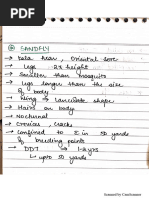 SANDFLY
→ Kala azar, Oriental sore
→ Legs - 2x height
→ Smaller than mosquito
→ Legs longer than the size
of body
→ Wing → Lanceolate shape
→ Hairs on body
→ Nocturnal
→ Crevices, cracks
→ Confined to Σ in 50 yards
of breeding points
→ DDT → 1-2 yrs
↳ upto 50 yards
Scanned by CamScanner